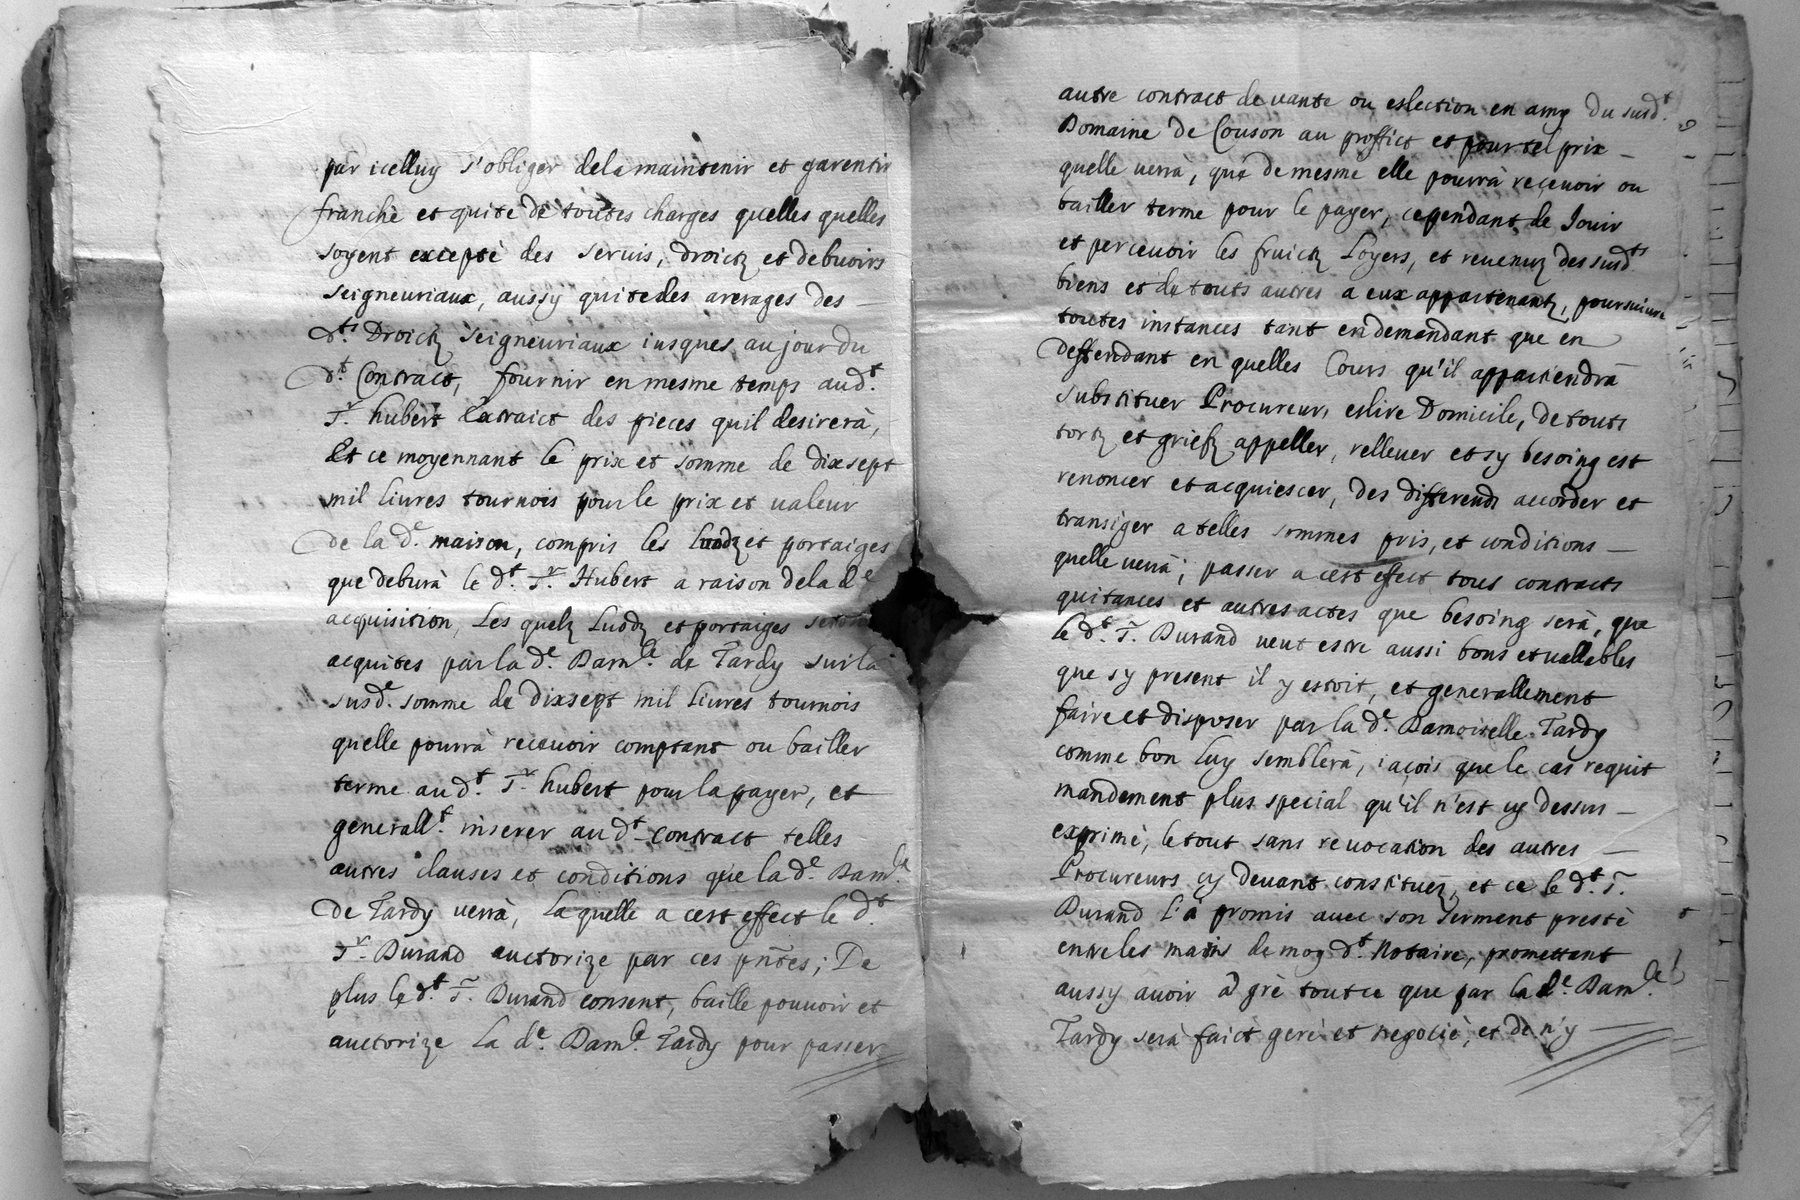 par icelluy s'obliger de la maintenir et garentir
franche et quite de toutes charges quelles quelles
soyent excepté des servis, droictz et debuoirs
seigneuriaux, aussy quite des arerages des —
dts. Droictz seigneuriaux iusques au jour du
dt. Contract, fournir en mesme temps audt.
Sr. hubert l'extraict des pieces quil desirerà,
Et ce moyennant le prix et somme de dixsept
mil liures tournois pour le prix et ualeur
de la de. maison, compris les luodz et portaiges
que deburà le dt. Sr. Hubert a raison de la de
acquisition, Les quelz Luodz et portaiges seront
acquites par la de. Damle. de Tardy sur la
susde. somme de dixsept mil liures tournois
quelle pourrà receuoir comptant ou bailler
terme au dt. Sr. hubert pour la payer, et
generallt. inserer au dt. contract telles
autres clauses et conditions que la de. Damle.
de Tardy uerrà, la quelle a cest effect le dt
Sr. Durand auctorize par ces pñtes; De
plus le dt. S. Durand consent, baille pouuoir et
auctorize la de. Damle. Tardy pour passer
autre contract de uante ou eslection en amy du susdt.
Domaine de Couson au proffict et pour tel prix —
quelle uerrà, que de mesme elle pourrà reçeuoir ou
bailler terme pour le payer, cependant de Jouir
et perceuoir les fruictz Loyers, et reuenuz des susdts
biens et de touts autres a eux appartenantz, poursuiure
toutes instances tant en demandant que en
deffendant en quelles Cours qu'il appartiendrà
substituer Procureur, eslire Domicile, de touts
tortz et griefz appeller, relleuer et sy besoing est
renoncer et acquiescer, des differends accorder et
transiger a telles sommes pris, et conditions —
quelle uerrà; passer a cest effect tous contracts
quitances et autres actes que besoing serà, que
le dt. S. Durand ueut estre aussi bons et uallables
que sy present il y estoit, et generallement
faire et disposer par la de. Damoiselle Tardy
comme bon luy semblerà, iaçois que le cas requit
mandement plus special qu'il n'est cy dessus —
exprimé, le tout sans reuocation des autres —
Procureurs cy deuant constituéz, et ce le dt. S.
Durand l'a promis auec son serment presté
entre les mains de moy dt. Notaire, promettant
aussy auoir à gré tout ce que par la de. Damle.
Tardy serà faict geré et negocié, et de n'y —